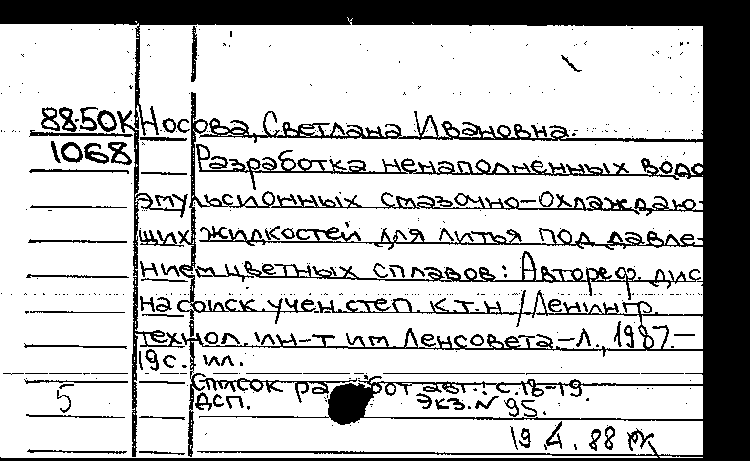 88-50К Носова, Светлана Ивановна.
1068 Разработка ненаполненных водо
эмульсионных смазочно-охлаждаю-
щих жидкостей для литья под давле-
нием цветных сплавов: Автореф. дис.
на соиск. учен. степ. к.т.н / Ленингр.
технол. ин-т им. Ленсовета. -Л., 1987.-
19с. ил.
5 Список работ авт.: с.18-19.
ДСП. Экз. N 95.
19.4.88